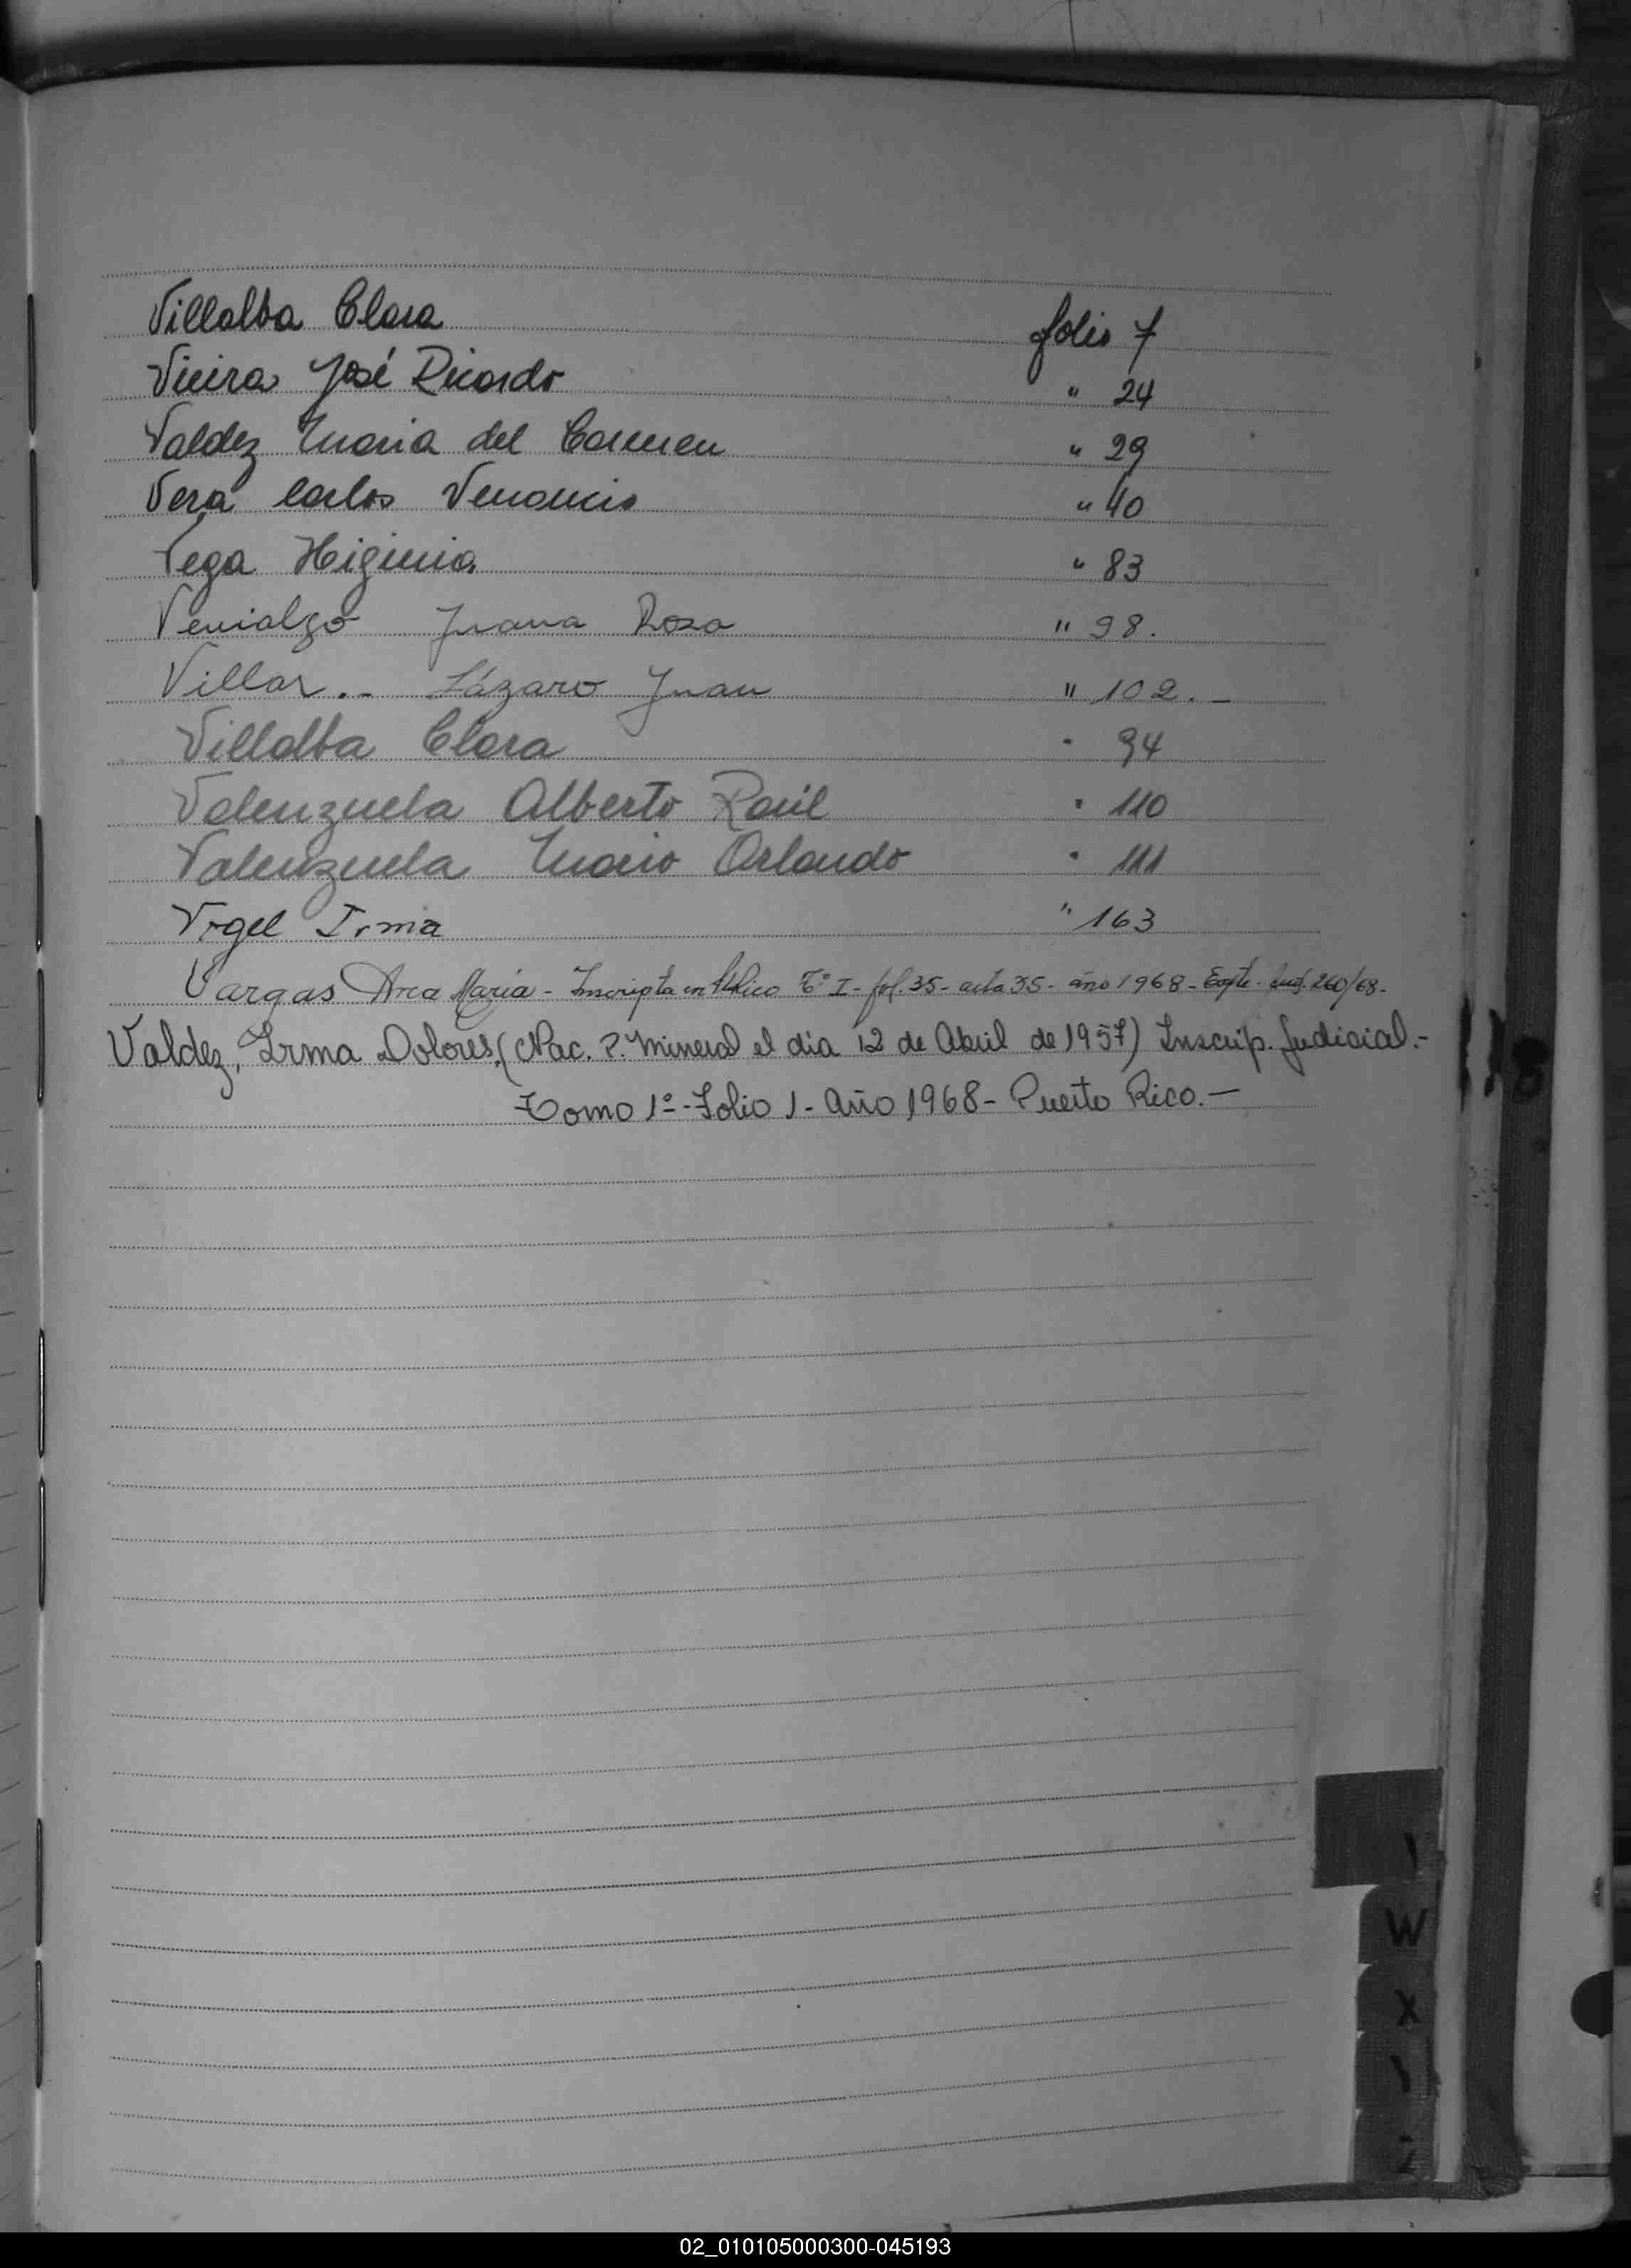 Villalba Clara folio 7
Vieira José Ricardo " 24
Valdez Maria del Carmen " 29
Vera Carlos Venancio " 40
Vega Higinia " 83
Venialgo Juana Rosa " 98.
Villar.- Lázaro Juan " 102.-
Villalba Clara " 94
Valenzuela Alberto Raúl " 110
Valenzuela Mario Orlando " 111
Vogel Irma " 163
Vargas Ana María - Inscripta en P. Rico T° I - fol. 35 - acta 35 - año 1968 - Expte. Jud. 260/68-
Valdez, Irma Dolores, (Nac. P. Mineral el dia 12 de Abril de 1957) Inscrip. Judicial.-
Tomo 1º - Folio 1 - Año 1968 - Puerto Rico.-
W
X
02_010105000300-045193